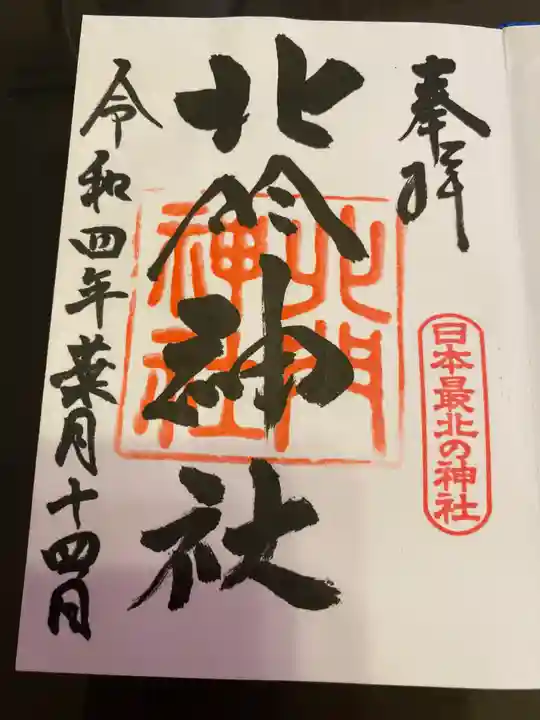 奉拝
日本最北の神社
北門神社
北門神社
令和四年葉月十四日